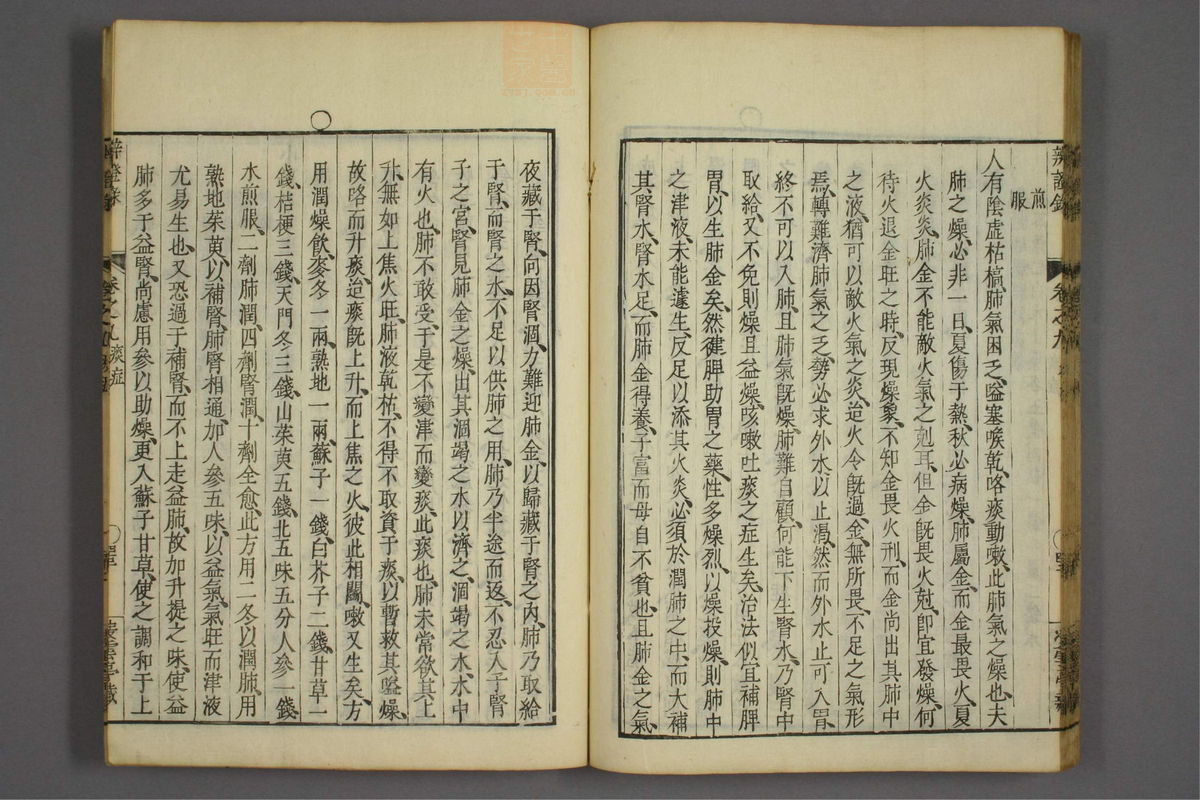 辨證錄
卷之九
煎服
人有陰虛枯槁肺氣困乏嗌塞喉乾咯痰動嗽此肺氣之燥也夫
肺之燥必非一日夏傷于熱秋必病燥肺屬金而金最畏火夏
火炎炎肺金不能敵火氣之尅耳但金既畏火尅卽宜發燥何
待火退金旺之時反現燥象不知金畏火刑而金尚出其肺中
之液猶可以敵火氣之炎迨火令既過金無所畏不足之氣形
焉轉難濟肺氣之乏勢必求外水以止渴然而外水止可入胃
終不可以入肺且肺氣既燥肺難自顧何能下生腎水乃腎中
取給又不免則燥且益燥咳嗽吐痰之症生矣治法似宜補脾
胃以生肺金矣然健脾助胃之藥性多燥烈以燥投燥則肺中
之津液未能遽生反足以添其火炎必須於潤肺之中而大補
其腎水腎水足而肺金得養子富而母自不貧也且肺金之氣
夜藏于腎向因腎涸力難迎肺金以歸藏于腎之內肺乃取給
于腎而腎之水不足以供肺之用肺乃半途而返不忍入于腎
子之宮腎見肺金之燥出其涸竭之水以濟之涸竭之水水中
有火也肺不敢受于是不變津而變痰此痰也肺未常欲其上
升無如上焦火旺肺液乾枯不得不取資于痰以暫救其嗌燥
故咯而升痰迨痰既上升而上焦之火彼此相鬭嗽又生矣方
用潤燥飲麥冬一兩熟地一兩蘇子一錢白芥子二錢甘草一
錢桔梗三錢天門冬三錢山茱萸五錢北五味五分人參一錢
水煎服二劑肺潤四劑腎潤十劑全愈此方用二冬以潤肺用
熟地茱萸以補腎肺腎相通加人參五味以益氣氣旺而津液
尤易生也又恐過于補腎而不上走益肺故加升提之味使益
肺多于益腎尚慮用參以助燥更入蘇子甘草使之調和于上
辨證錄
卷之九
痰症